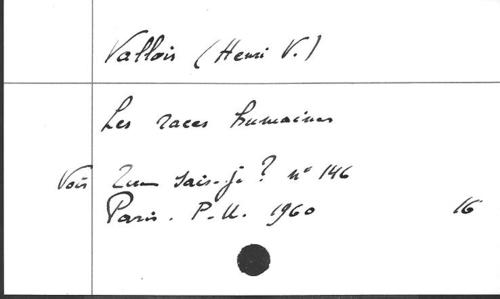 Vallois (Henri V.)
Les races humaines
Voir Que sais-je ? n° 146
Paris. P.U. 1960 16